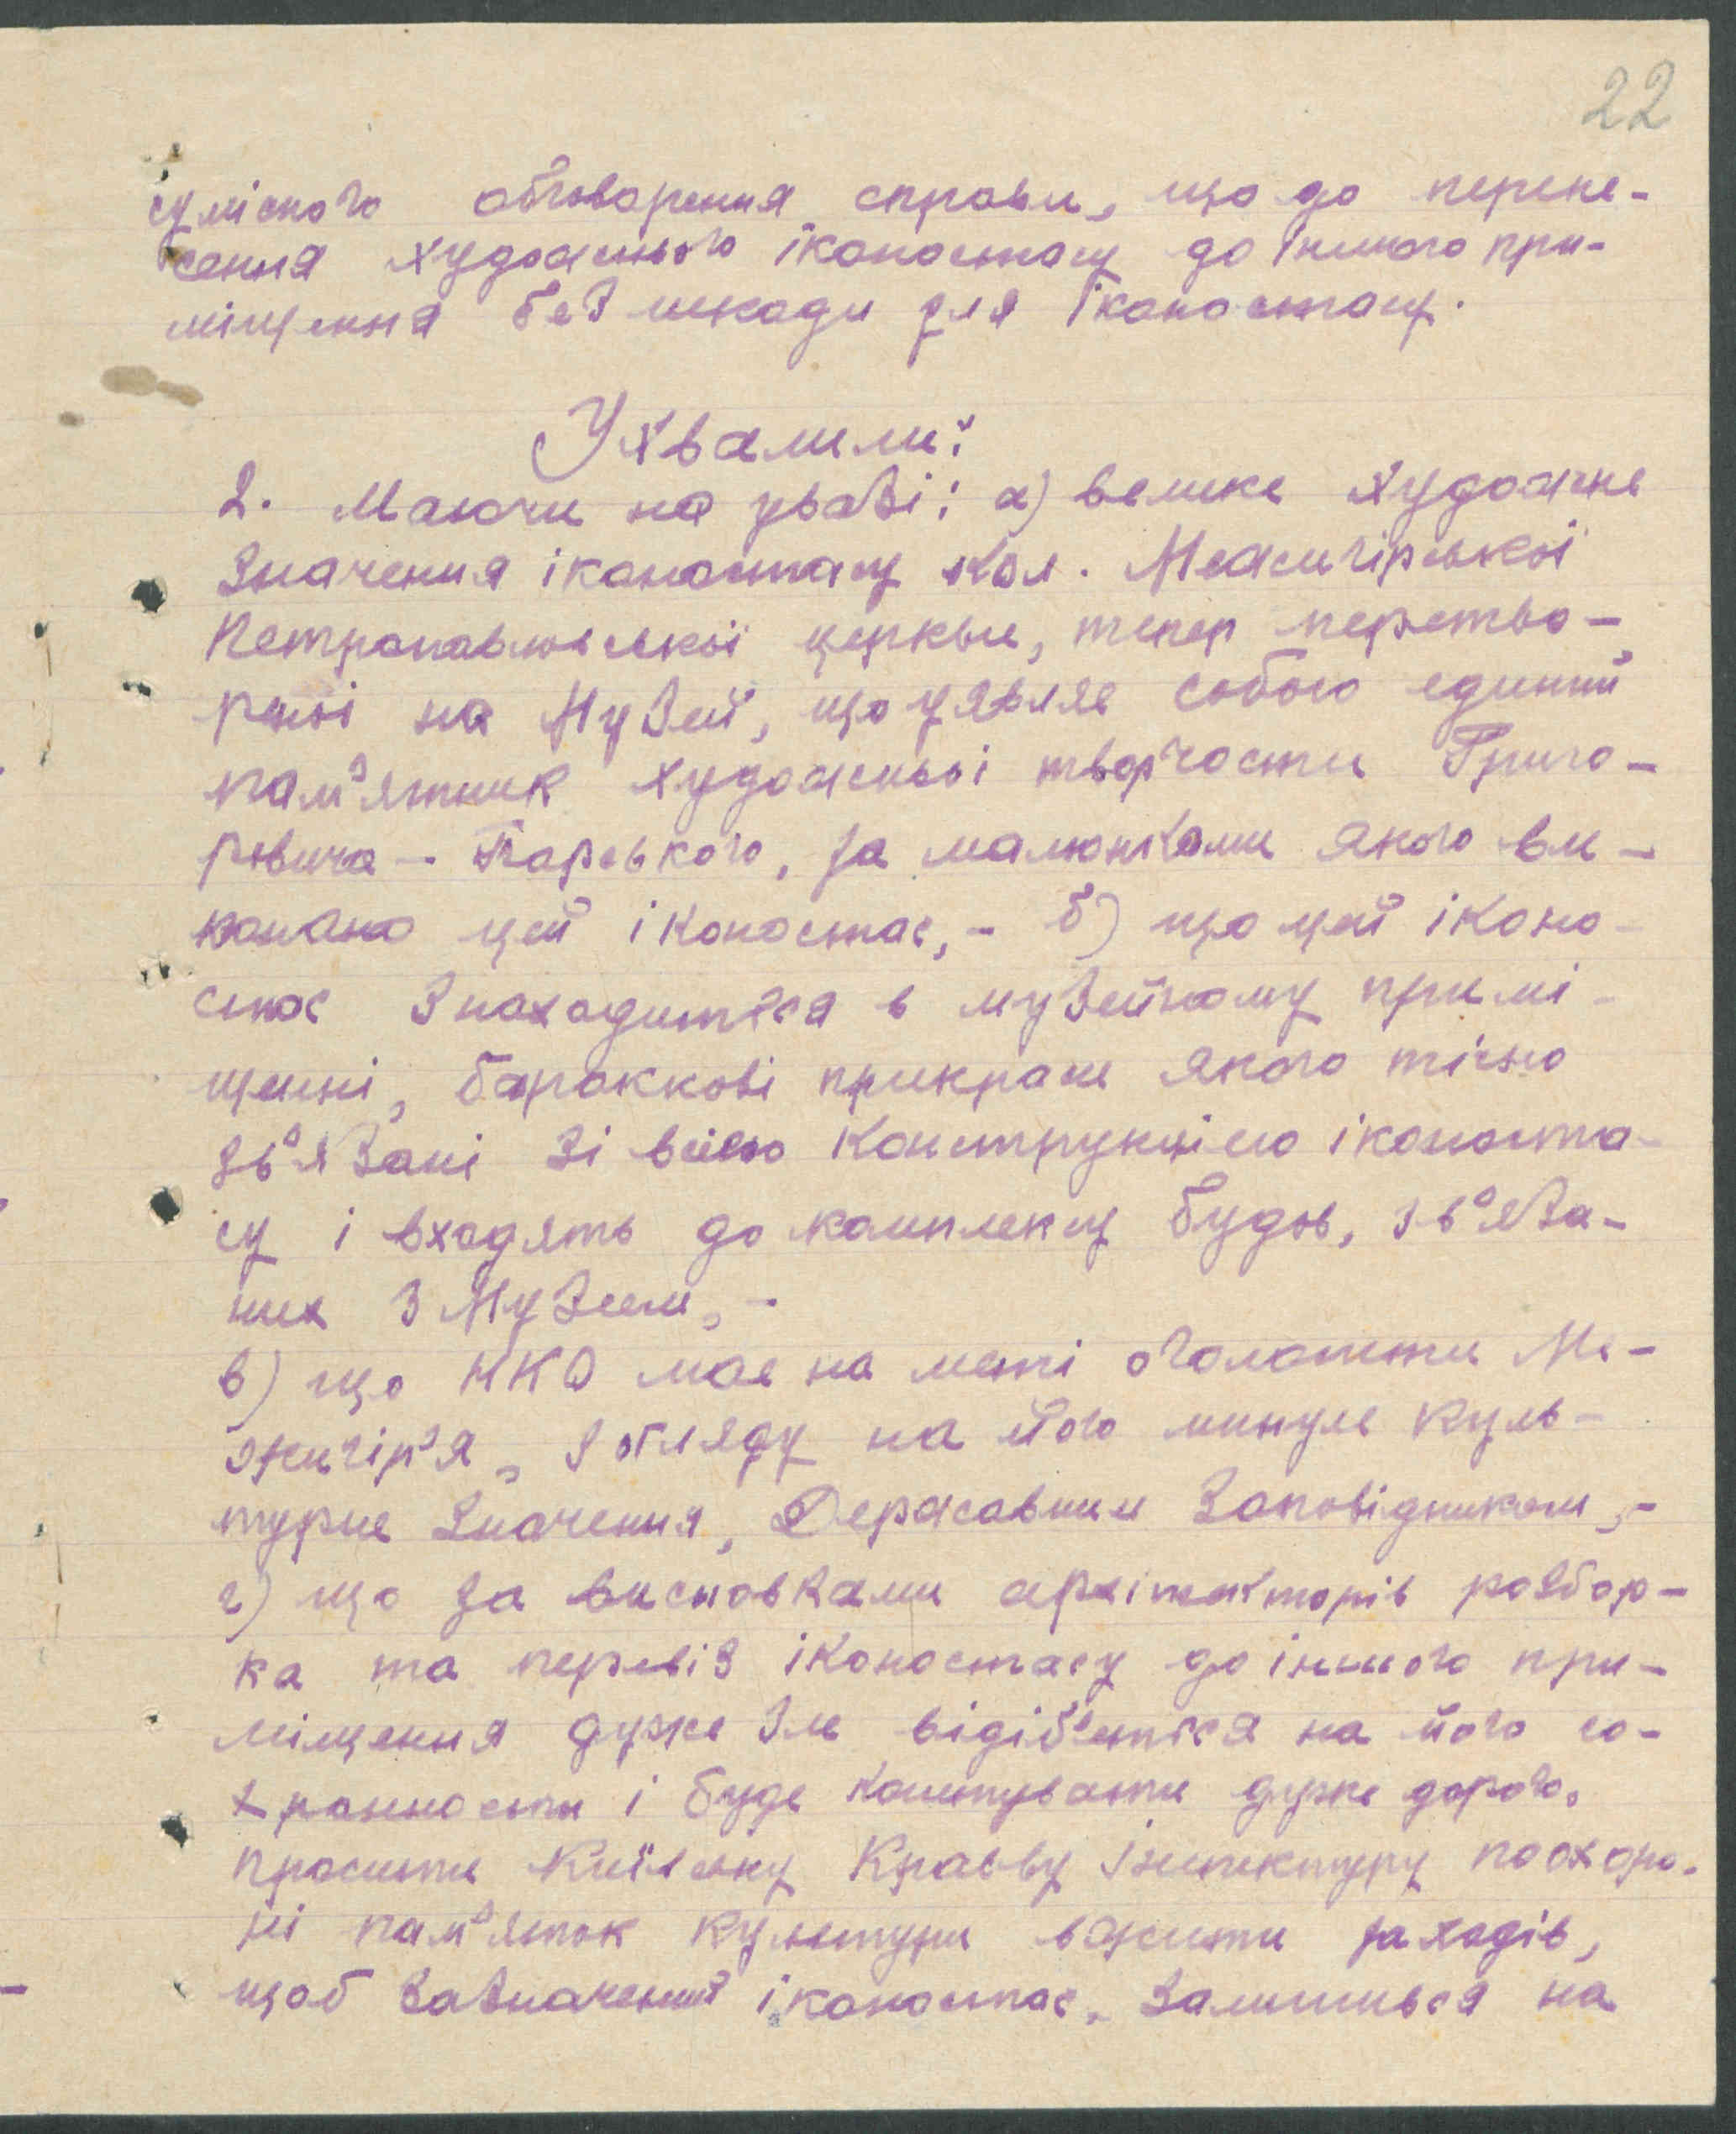 22
сумісного обговорення справи, що до перене-
сення художнього іконостасу до іншого при-
міщення без шкоди для іконостасу.
Ухвалили:
2. Маючи на увазі: а) велике художнє
значення іконостасу кол. Межигірської
Петропавлівської церкви, тепер перетво-
реної на Музей, що уявляє собою єдиний
пам'ятник художньої творчости Григо-
ровича-Барського, за малюнками якого ви-
конано цей іконостас,- б) що цей іконо-
стас знаходиться в музейному примі-
щенні, бароккові прикраси якого тісно
зв'язані зі всією конструкцією іконоста-
су і входять до комплексу будов, зв'яза-
них з Музеєм,-
в) що НКО має на меті оголосити Ме-
жигір'я, з огляду на його минуле куль-
турне значення, Державним Заповідником,-
г) що за висновками архітекторів розбор-
ка та перевіз іконостасу до іншого при-
міщення дуже зле відіб'ється на його со-
хранности і буде коштувати дуже дорого,
просити Київську Краєву Інспектуру по охоро-
ні пам'яток культури вжити заходів,
щоб зазначений іконостас, залишився на